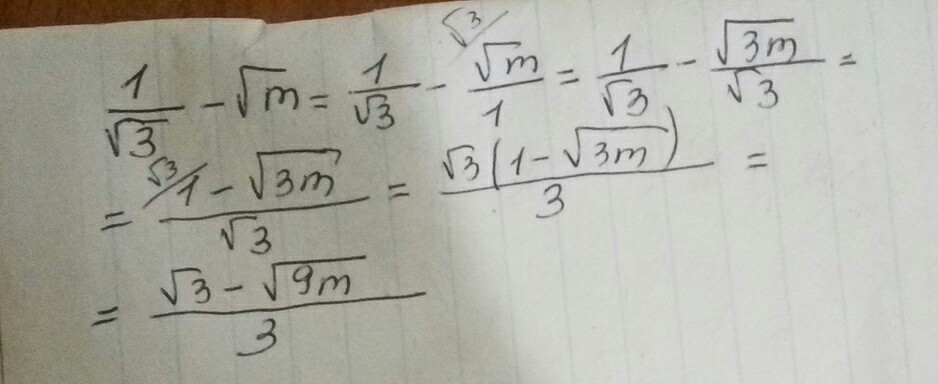 1/√3 - √m = 1/√3 - √3/ √m/1 = 1/√3 - √3m/√3 =
= √3/ 1 - √3m/√3 = √3(1 - √3m)/3 =
= √3 - √9m/3